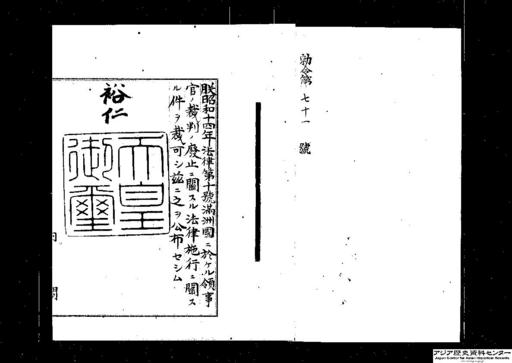 勅令第七十一號
朕昭和十四年法律第十號滿洲國ニ於ケル領事
官ノ裁判ノ廢止ニ關スル法律施行ニ關ス
ル件ヲ裁可シ茲ニ之ヲ公布セシム
裕仁
天皇
御璽
アジア歴史資料センター
Japan Center for Asian Historical Records